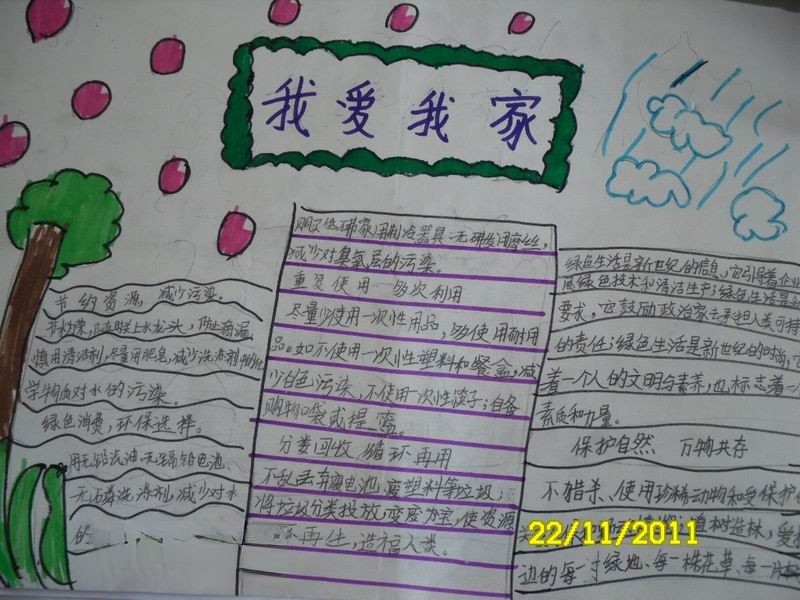 我爱我家
节约资源，减少污染。
节约水，随时关上水龙头，防止滴漏，
慎用清洁剂，尽量用肥皂，减少洗涤剂中的化
学物质对水的污染。
绿色消费，环保选择。
用无铅汽油、无镉铅电池、
无磷洗涤剂，减少对水
的
购买低氟家用制冷器具、无氟发用摩丝，
减少对臭氧层的污染。
重复使用 多次利用
尽量少使用一次性用品，多使用耐用
品。如不使用一次性塑料和餐盒，减
少白色污染，不使用一次性筷子；自备
购物口袋或提篮。
分类回收 循环再用
不乱丢弃废电池、废塑料等垃圾；
将垃圾分类投放，变废为宝，使资源
再生，造福人类。
绿色生活是新世纪的信息，它引导着企业
展绿色技术和清洁生产；绿色生活是
要求，它鼓励政治家去承担人类可持
的责任；绿色生活是新世纪的时尚，它
着一个人的文明与素养，也标志着一
素质和力量。
保护自然 万物共存
不猎杀、使用珍稀动物和受保护
植树造林，爱护
边的每一寸绿地、每一株花草、每一片
22/11/2011